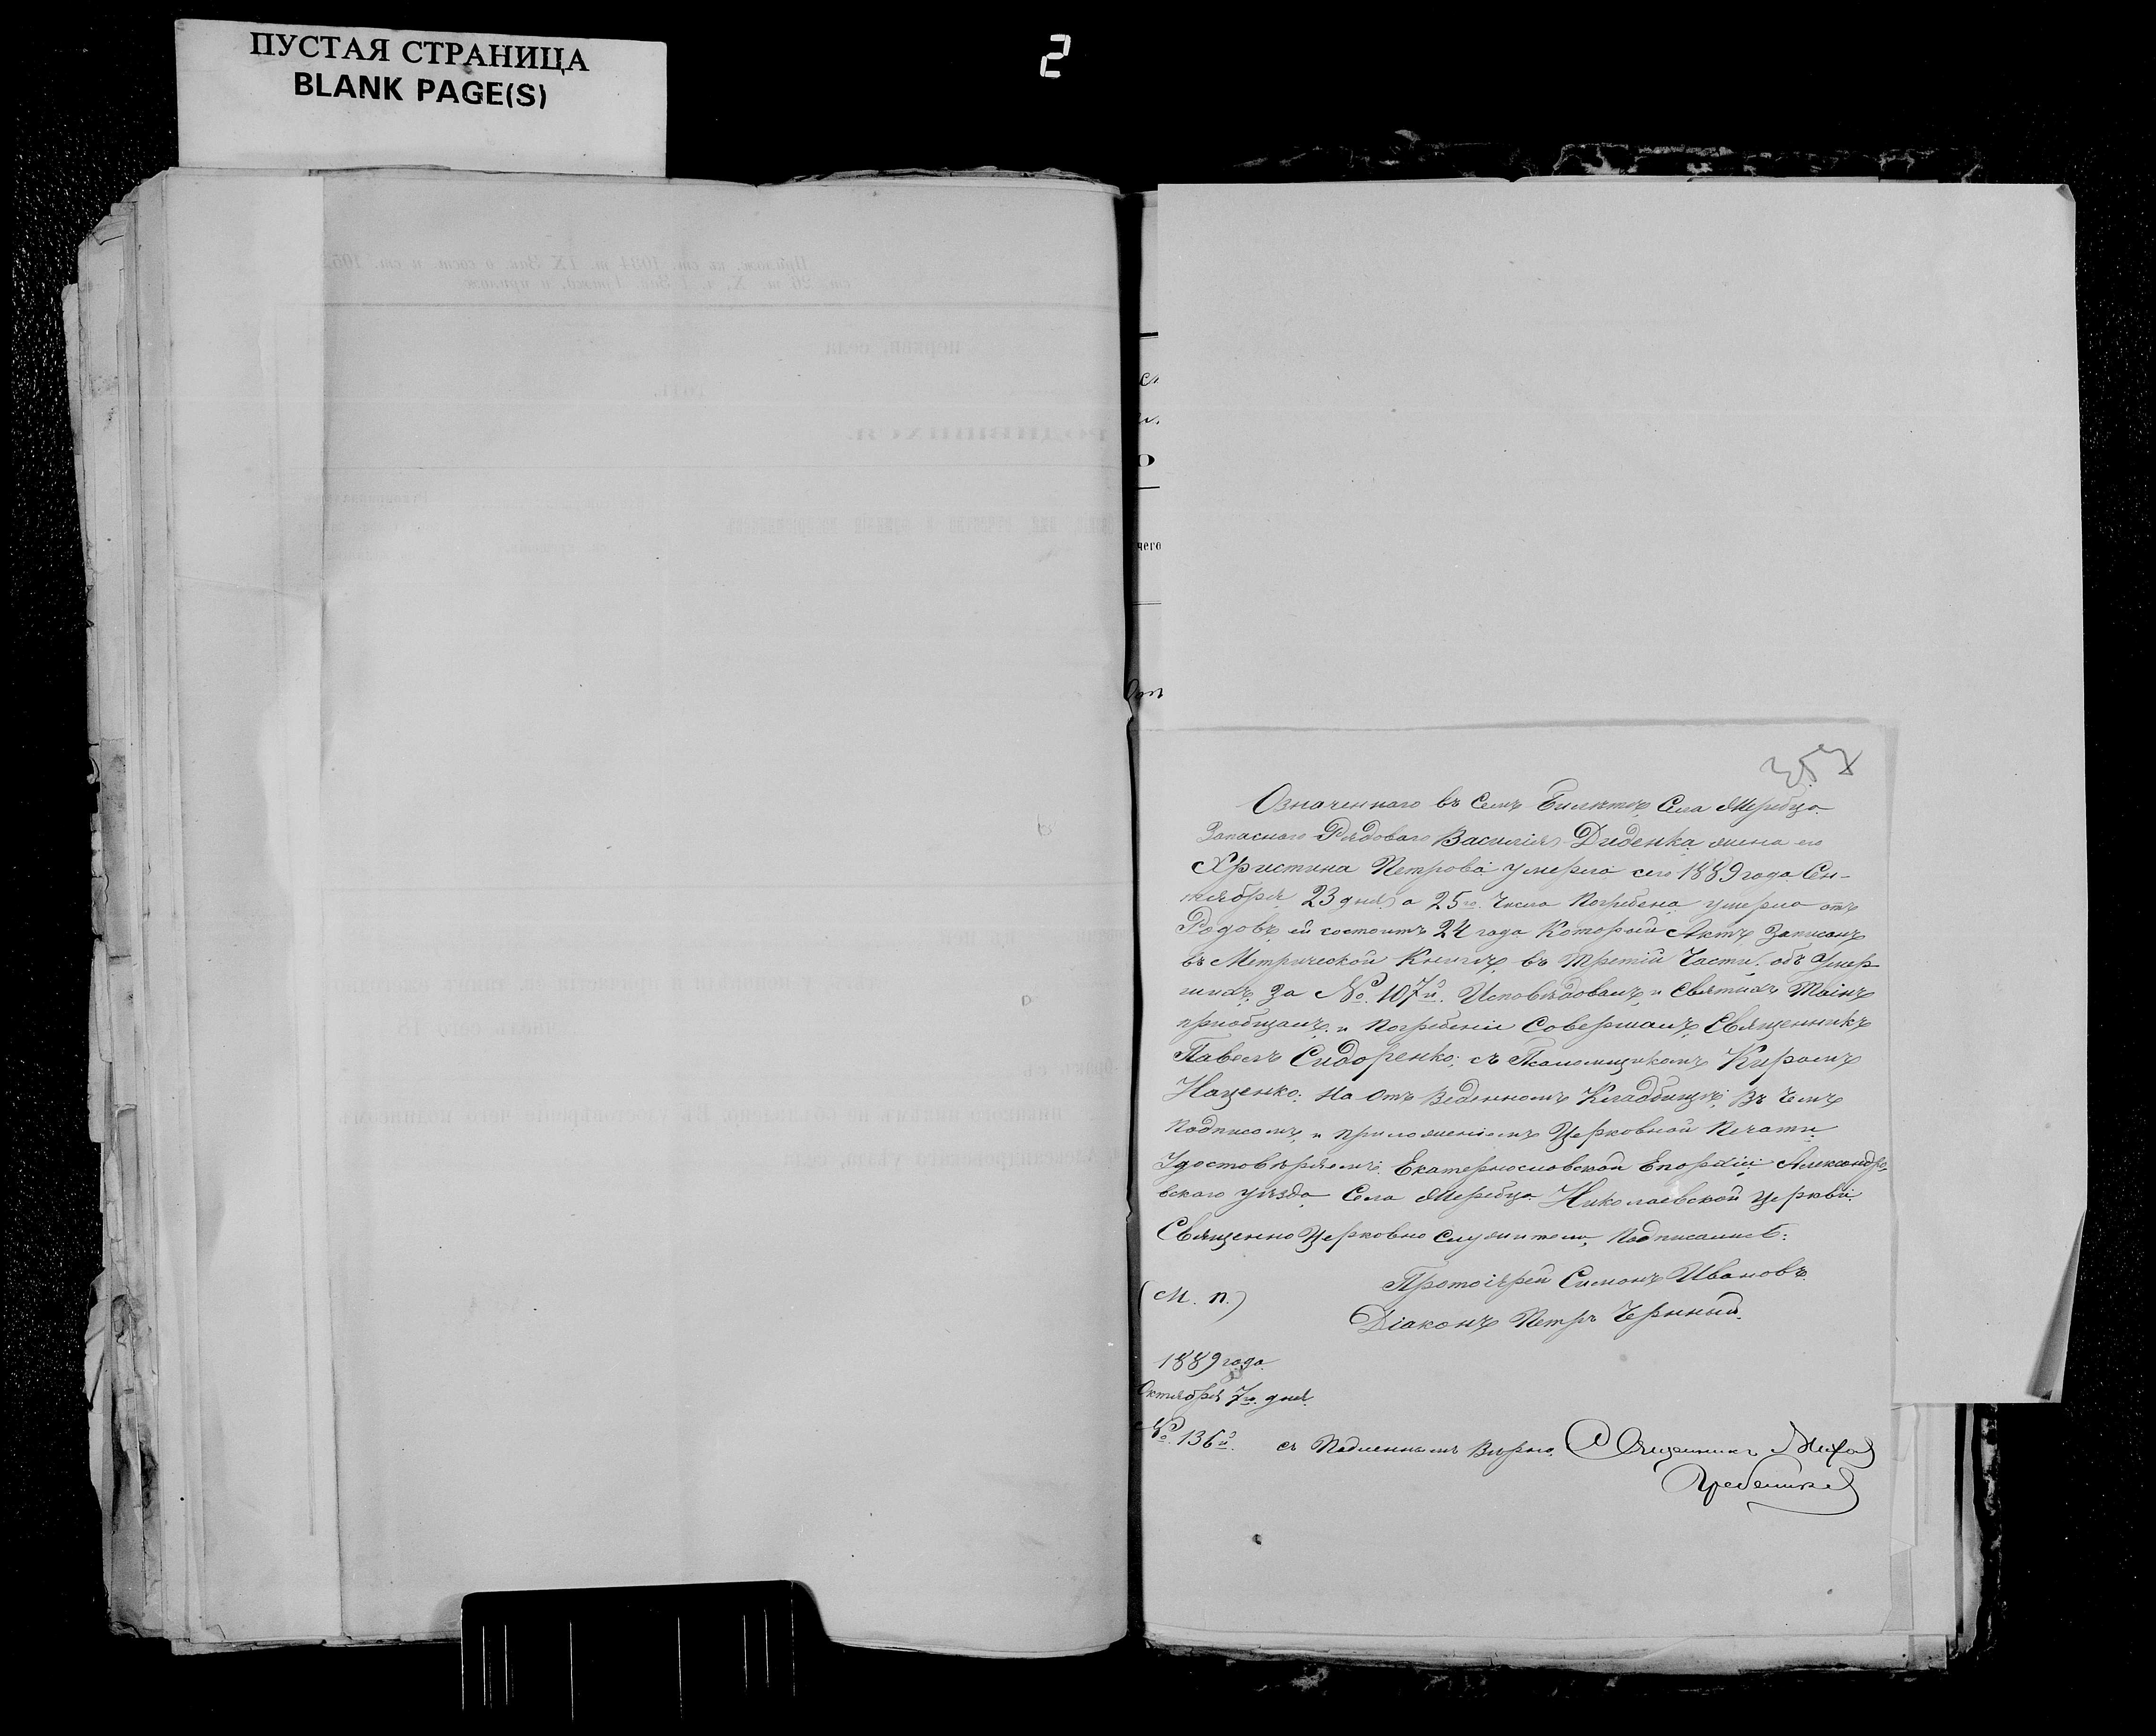 ПУСТАЯ СТРАНИЦА
BLANK PAGE(S)
2
357
Означеннаго въ семъ Билетѣ Села Жеребца
Запаснаго Рядоваго Василія Диденка жена его
Христина Петрова умерла сего 1889 года Сен-
тября 23 дня, а 25го. числа Погребена умерла отъ
Родовъ, ей состоитъ 24 года Который Актъ Записанъ
въ Метрической Книгѣ, въ третій Части, объ Умер
шихъ, за №. 107й. Исповѣдовалъ и Святихъ Таинъ
приобщалъ, и Погребеніи Совершалъ, Священникъ
Павелъ Сидоренко; съ Псаломщикомъ Киромъ
Наценко: на Отъ Веденномъ Кладбищѣ; Въ чемъ
Подписомъ, и приложеніемъ Церковной Печати
Удостовѣряемъ: Екатеринославской Епархіи Александро-
вского уѣзда, Села Жеребца Николаевской Церкви:
Священно Церковно Служители, Подписались:
Протоіерей Симонъ Ивановъ
(М. П.)
Діаконъ Петръ Чернный.
1889 года
Октября 7го. дня.
№. 136й. съ Подленнымъ Вѣрно, Священникъ